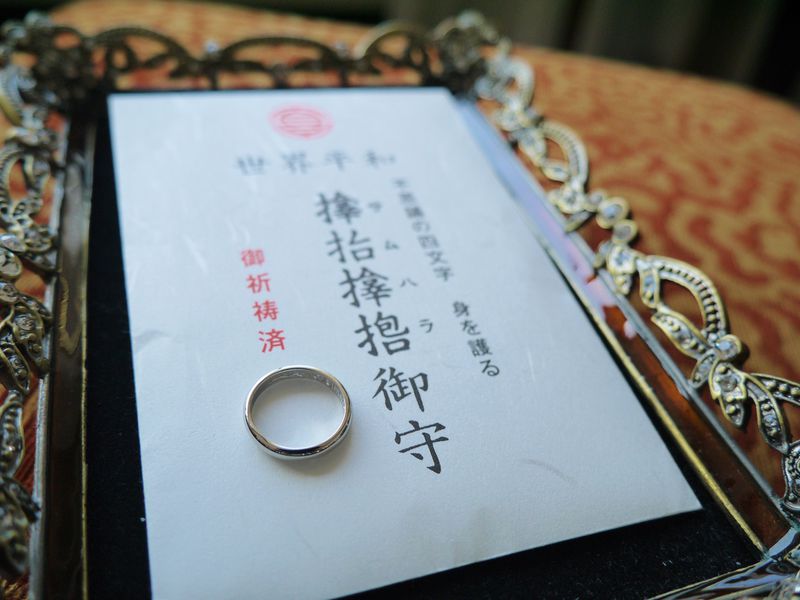 世界平和
不思議の四文字 身を護る
サムハラ
𪮷抬𪮷𪮇御守
御祈祷済